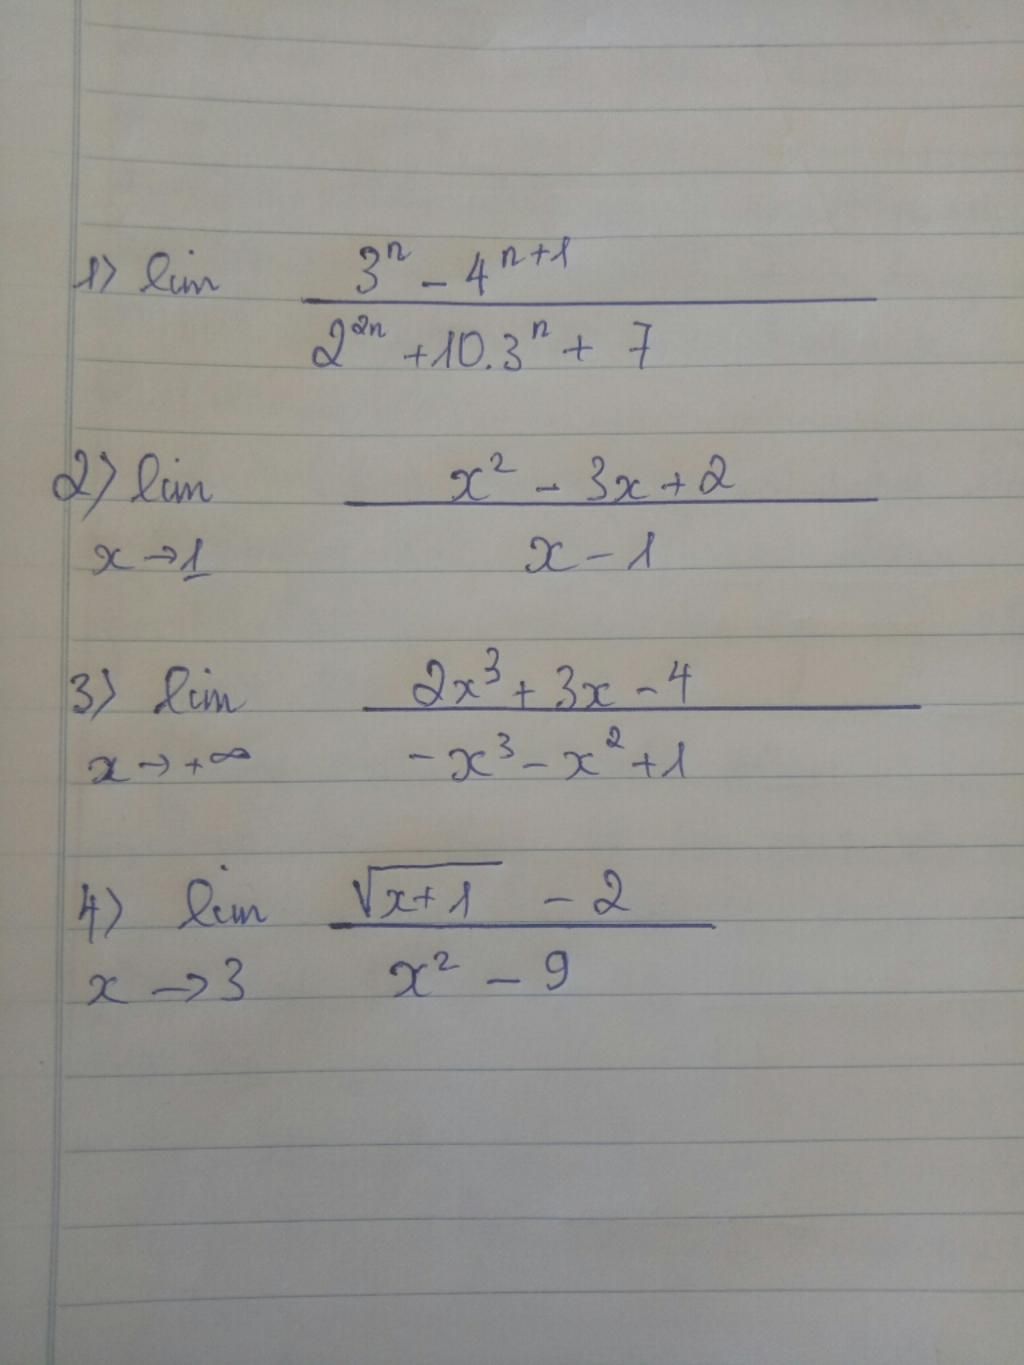 1) lim 3ⁿ - 4ⁿ⁺¹
2²ⁿ + 10.3ⁿ + 7
2) lim x² - 3x + 2
x → 1 x - 1
3) lim 2x³ + 3x - 4
x → +∞ -x³ - x² + 1
4) lim √(x+1) - 2
x → 3 x² - 9